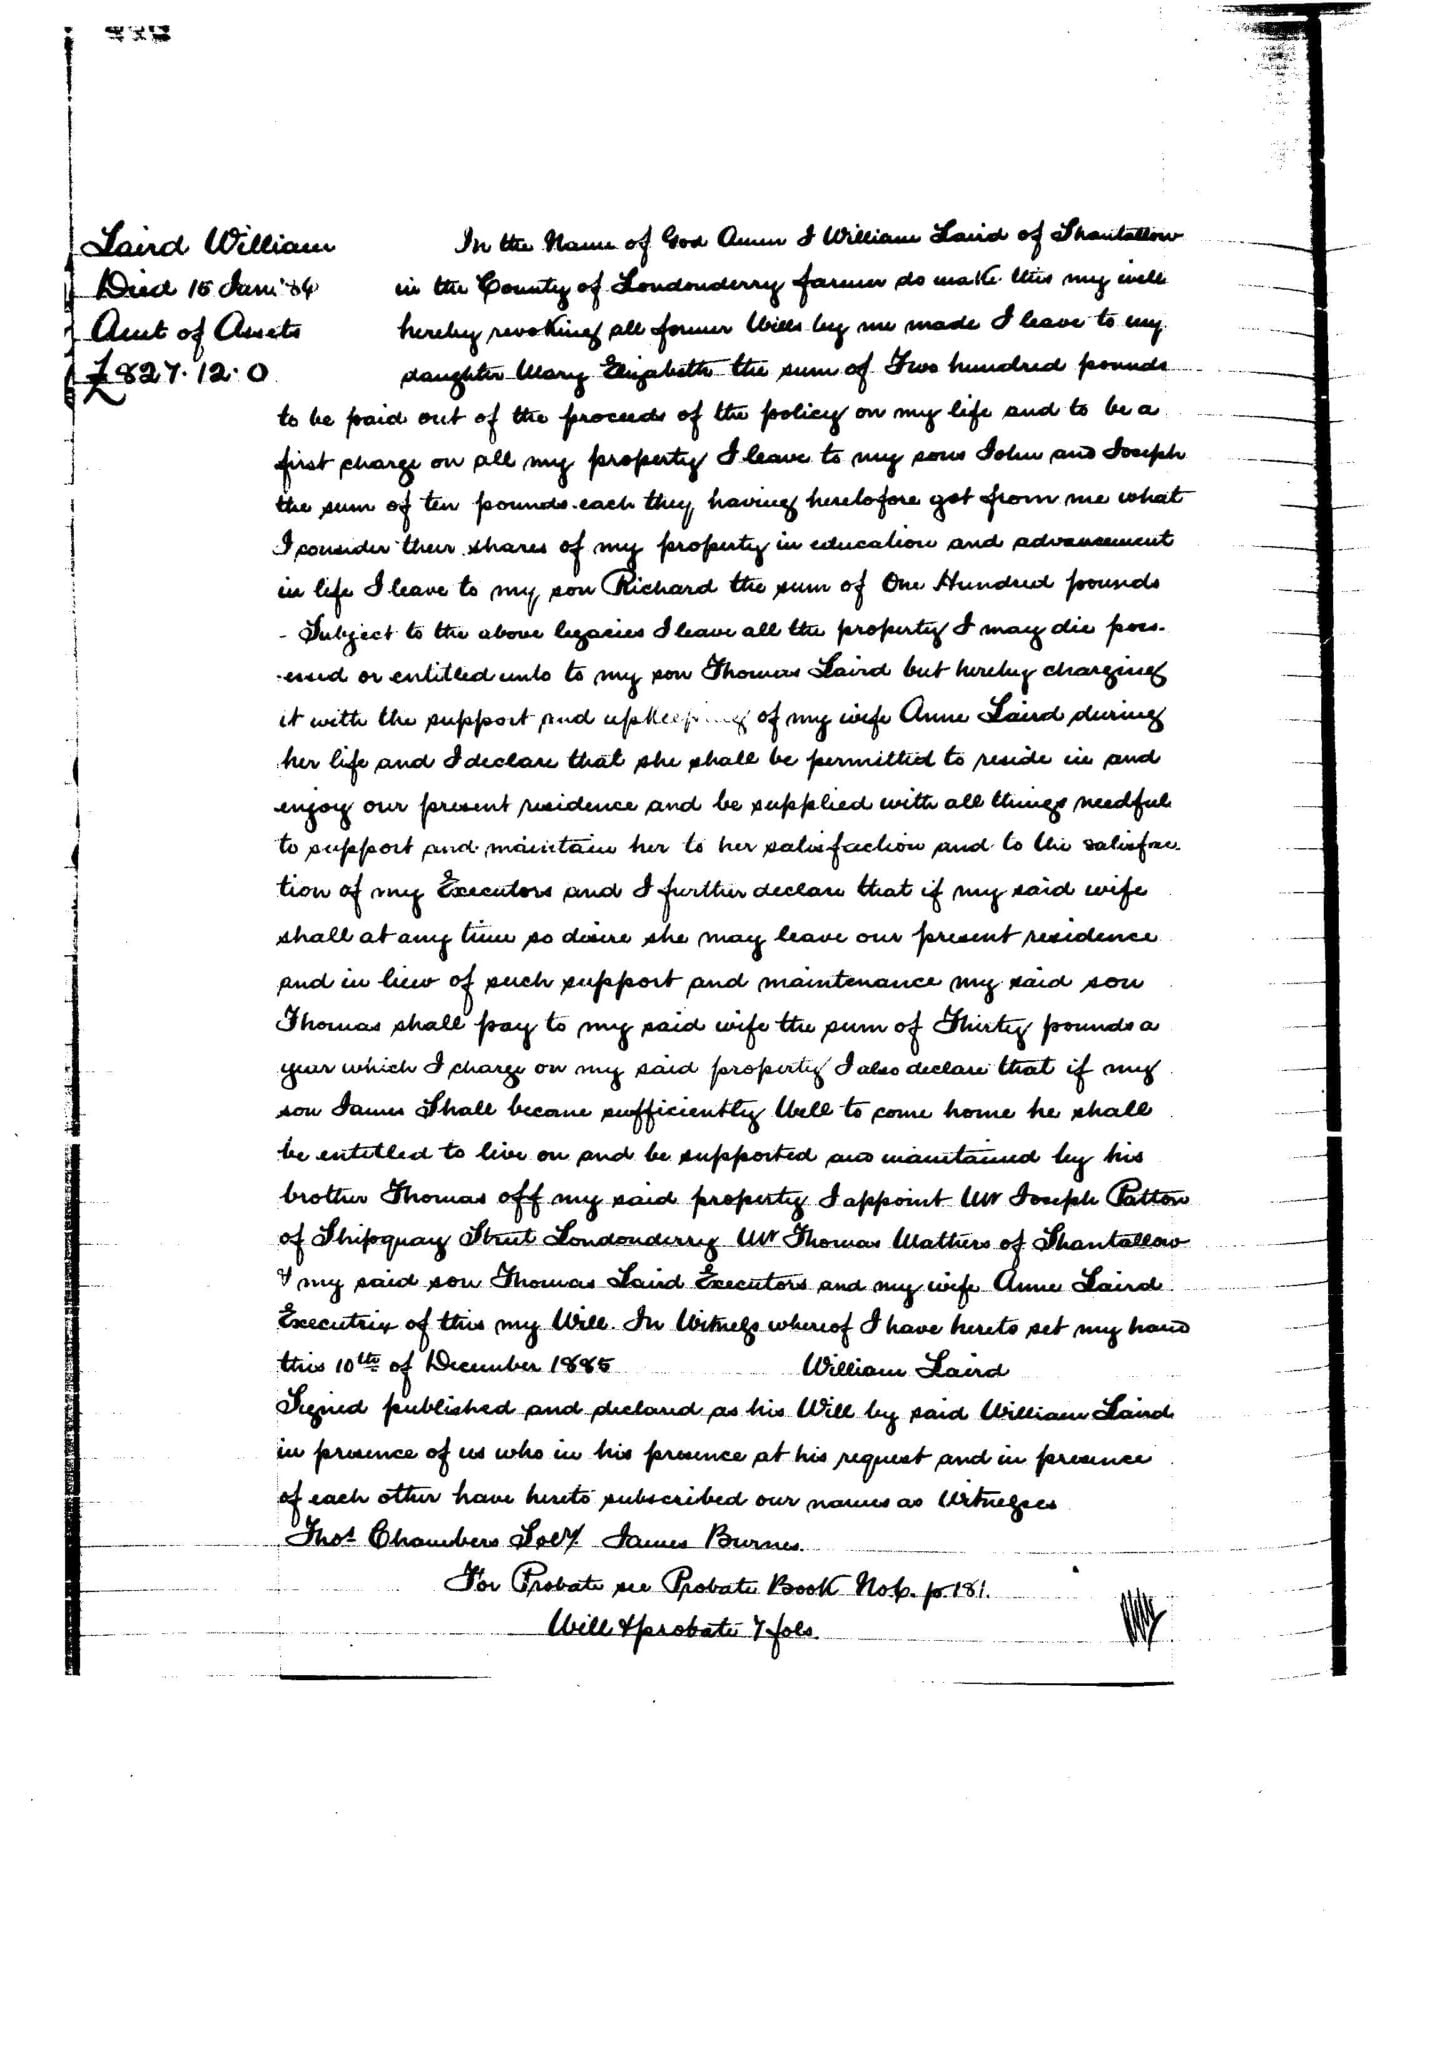 Laird William
Died 15 Jan: 86
Amt of Assets
£827.12.0
In the Name of God Amen I William Laird of Shantallow
in the County of Londonderry farmer do make this my will
hereby revoking all former Wills by me made I leave to my
daughter Mary Elizabeth the sum of Two hundred pounds
to be paid out of the proceeds of the policy on my life and to be a
first charge on all my property I leave to my sons John and Joseph
the sum of ten pounds each they having heretofore got from me what
I consider their shares of my property in education and advancement
in life I leave to my son Richard the sum of One Hundred pounds
- Subject to the above legacies I leave all the property I may die poss-
-essed or entitled unto to my son Thomas Laird but hereby charging
it with the support and upkeeping of my wife Anne Laird during
her life and I declare that she shall be permitted to reside in and
enjoy our present residence and be supplied with all things needful
to support and maintain her to her satisfaction and to the satisfac-
tion of my Executors and I further declare that if my said wife
shall at any time so desire she may leave our present residence
and in liew of such support and maintenance my said son
Thomas shall pay to my said wife the sum of Thirty pounds a
year which I charge on my said property I also declare that if my
son James Shall become sufficiently Well to come home he shall
be entitled to live on and be supported and maintained by his
brother Thomas off my said property I appoint Mr Joseph Patton
of Shipquay Street Londonderry Mr Thomas Mathers of Shantallow
& my said son Thomas Laird Executors and my wife Anne Laird
Executrix of this my Will. In Witness whereof I have hereto set my hand
this 10th of December 1885 William Laird
Signed published and declared as his Will by said William Laird
in presence of us who in his presence at his request and in presence
of each other have hereto subscribed our names as Witnesses
Thos Chambers Solr James Burnes.
For Probate see Probate Book No 6. p. 181.
Will & probate 7 fols.